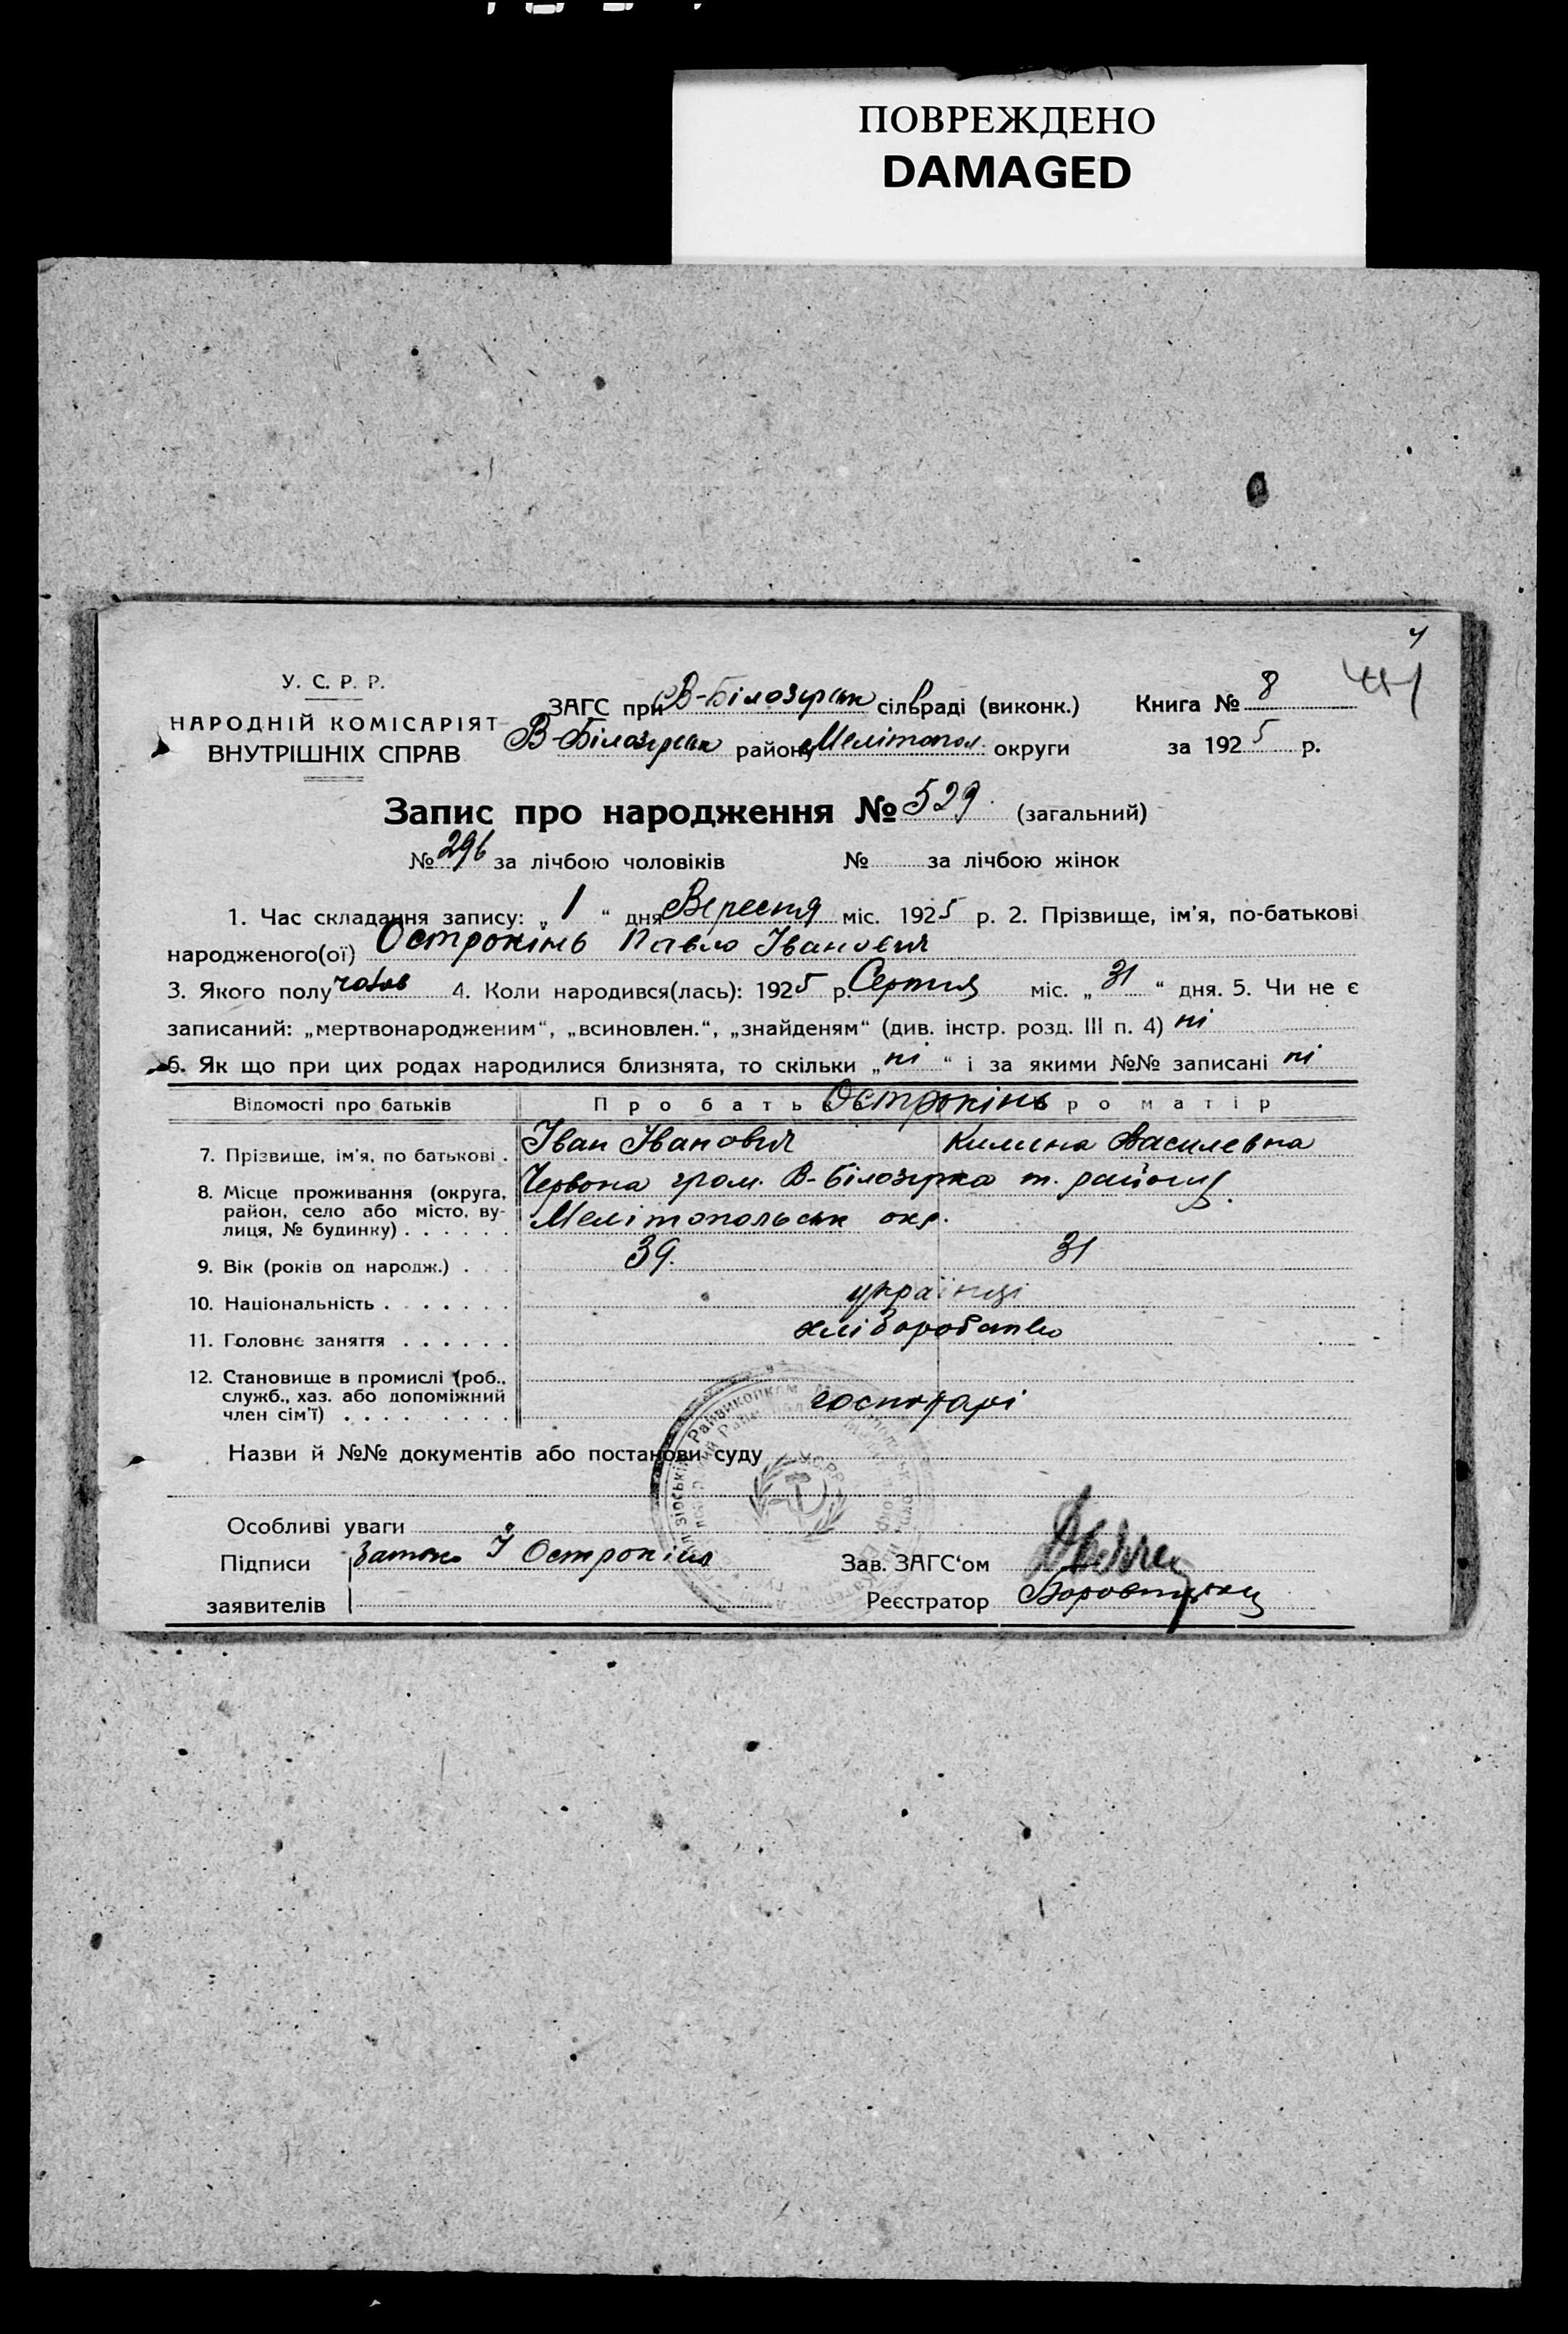 ПОВРЕЖДЕНО
DAMAGED
У. С. Р. Р.
НАРОДНІЙ КОМІСАРІЯТ
ВНУТРІШНІХ СПРАВ
ЗАГС при В-Білозірськ сільраді (виконк.) Книга № 8
В-Білозірськ району Мелітопол. округи за 1925 р.
Запис про народження № 529. (загальний)
№ 296 за лічбою чоловіків № за лічбою жінок
1. Час складання запису: „1“ дня Вересня міс. 1925 р. 2. Прізвище, ім'я, по-батькові
народженого(ої) Острокінь Павло Іванович
3. Якого полу чолов 4. Коли народився(лась): 1925 р. Серпня міс. „31“ дня. 5. Чи не є
записаний: „мертвонародженим“, „всиновлен.“, „знайденям“ (див. інстр. розд. III п. 4) ні
6. Як що при цих родах народилися близнята, то скільки „ні“ і за якими №№ записані ні
Відомості про батьків Про батька Острокінь Про матір
7. Прізвище, ім'я, по батькові . Іван Іванович Килина Василевна
8. Місце проживання (округа, район, село або місто, вулиця, № будинку) . . . . . . Червона гром. В-Білозірка т. району.
Мелітопольськ окр.
9. Вік (років од народж.) . . . 39. 31
10. Національність . . . . . . . українці
11. Головнє заняття . . . . . . хліборобство
12. Становище в промислі (роб., служб., хаз. або допоміжний член сім'ї) . . . . . . . . господарі
Назви й №№ документів або постанови суду
Особливі уваги
Підписи І Острокінь Зав. ЗАГС'ом
заявителів Реєстратор